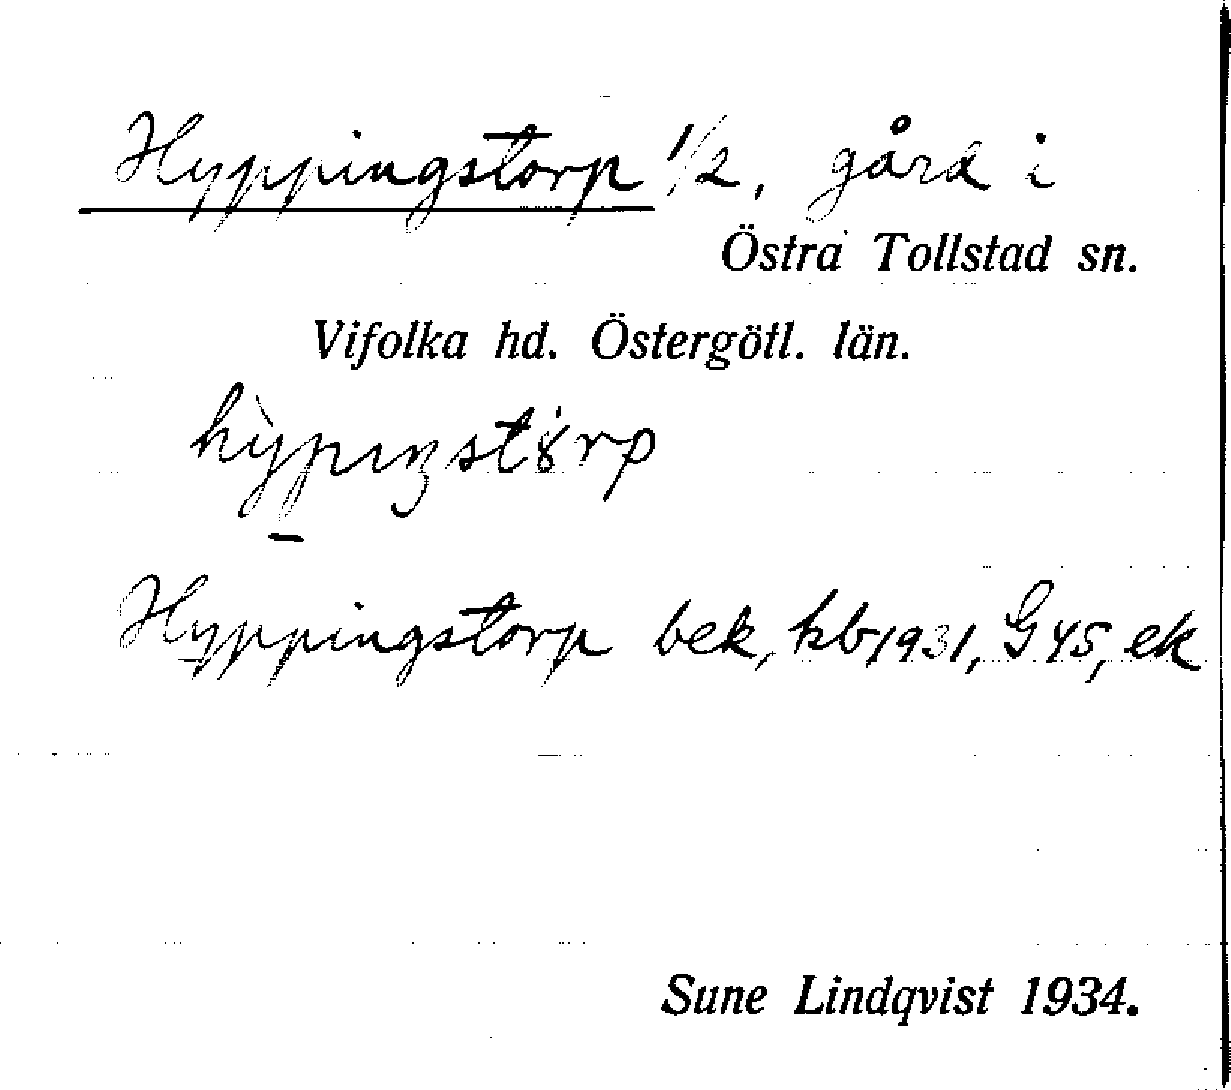 Hyppingstorp 1/2, gård i
Östra Tollstad sn.
Vifolka hd. Östergötl. län.
hỳpıŋstȣ̀rp
Hyppingstorp bek, kb 1931, G 45, ek
Sune Lindqvist 1934.